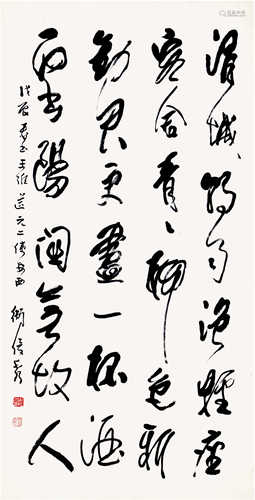 渭城朝雨浥輕塵
客舍青々柳色新
勸君更盡一杯酒
西出陽關無故人
戊辰夏書王維送元二使安西 衛俊秀